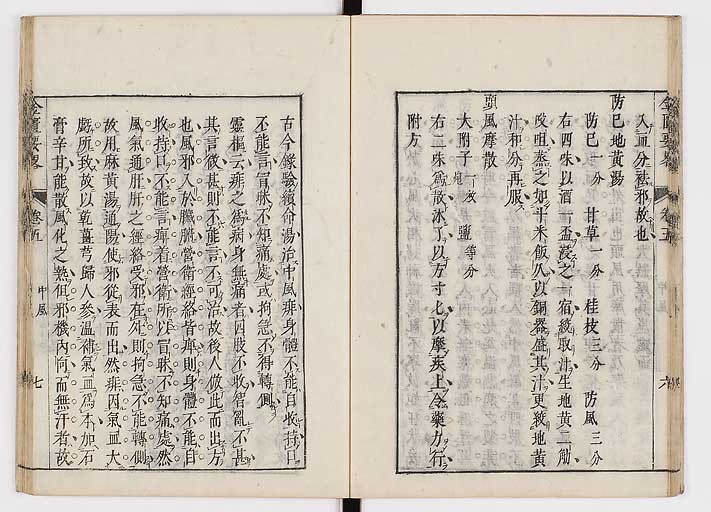 入血分祛邪故也
防已地黄湯
防已一分 甘草一分 桂枝三分 防風三分
右四味以酒一盃浸之一宿絞取汁生地黄二觔
㕮咀蒸之如斗米飯久以銅器盛其汁更絞地黄
汁和分再服
頭風摩散
大附子一枚炮 鹽等分
右二味爲散沐了以方寸匕以摩疾上令藥力行
附方
金匱要畧
卷五
中風
六
古今錄驗續命湯治中風痱身體不能自收持口
不能言冒昧不知痛處或拘急不得轉側
靈樞云痱之爲病身無痛者四肢不收智亂不甚
其言微甚則不能言不可治故後人倣此而出方
也風邪入於臟腑營衛經絡皆痹則身體不能自
收持口不能言痹着營衛所以冒昧不知痛處然
風氣通肝肝之經絡受邪在死則拘急不能轉側
故用麻黄湯通陽使邪從表而出然痱因氣血大
虧所致故以乾薑芎歸人參溫補氣血爲本加石
膏辛甘能散風化之熱但邪機內向而無汗者故
金匱要畧
卷五
中風
七